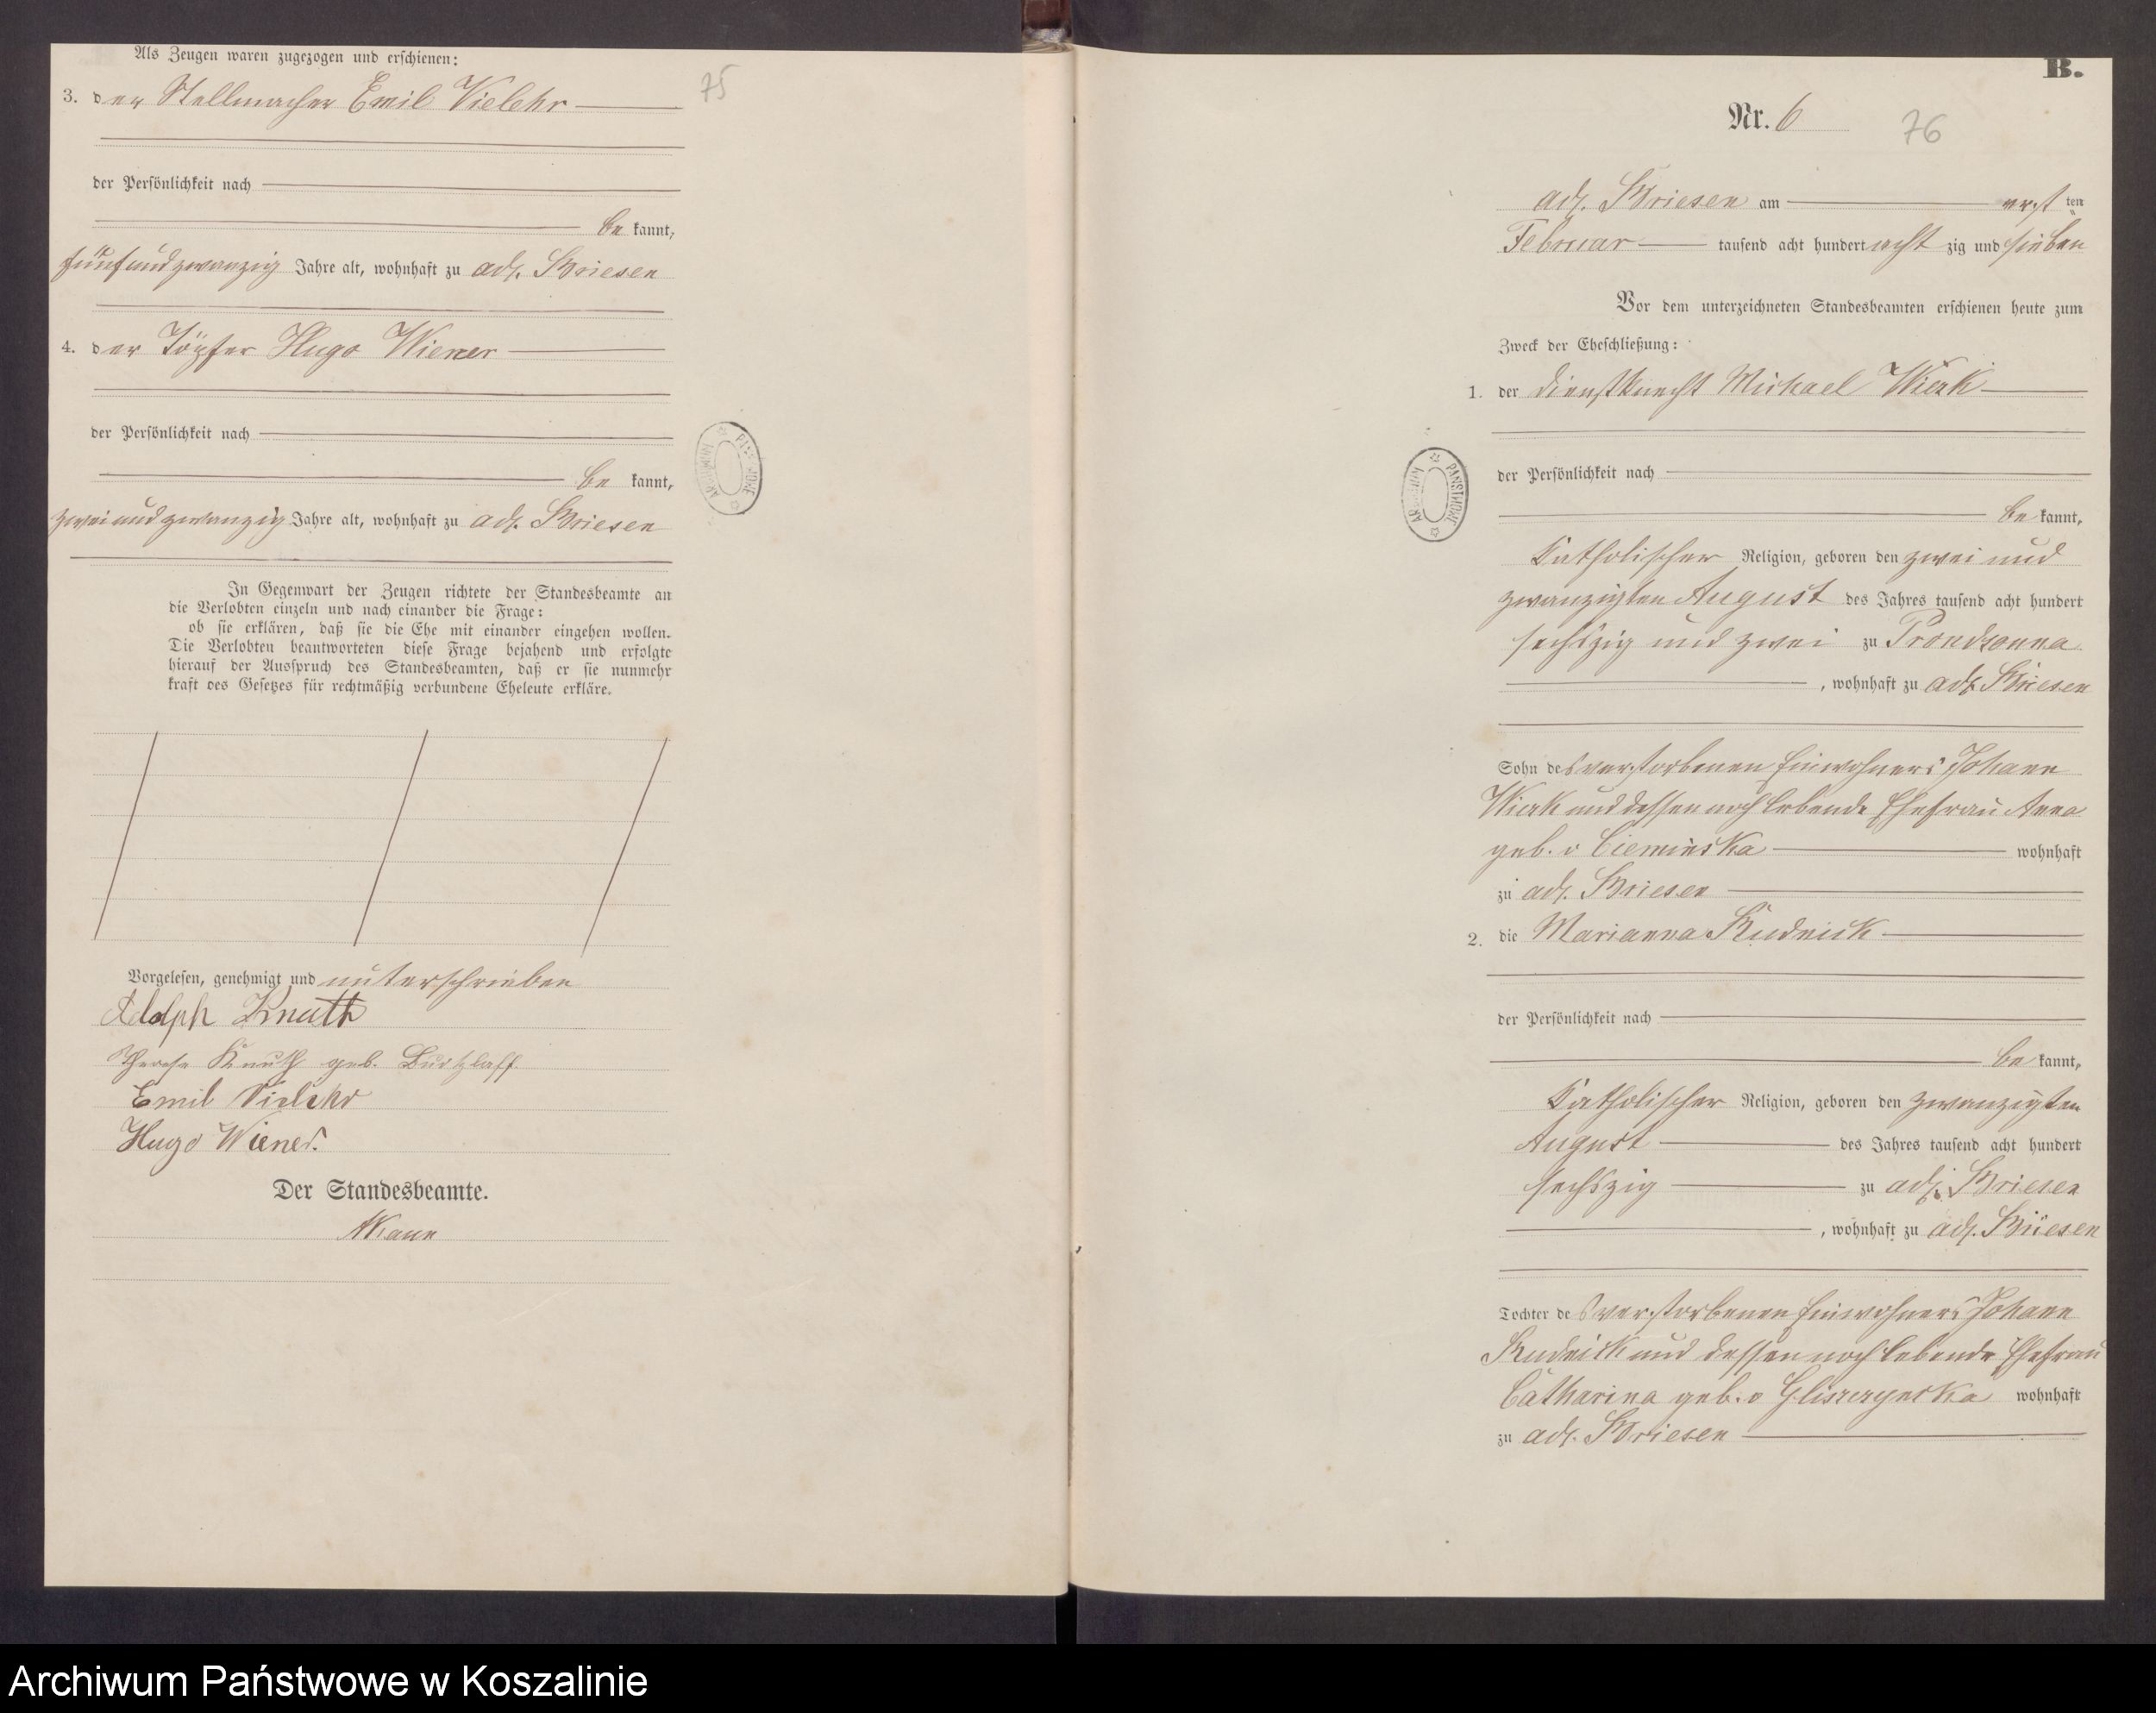 Als Zeugen waren zugezogen und erschienen:
3. der Stellmacher Emil Vielehr
75
der Persönlichkeit nach
be kannt,
fünfundzwanzig Jahre alt, wohnhaft zu adl. Briesen
4. der Töpfer Hugo Wiener
der Persönlichkeit nach
be kannt,
zweiundzwanzig Jahre alt, wohnhaft zu adl. Briesen
In Gegenwart der Zeugen richtete der Standesbeamte an
die Verlobten einzeln und nach einander die Frage:
ob sie erklären, daß sie die Ehe mit einander eingehen wollen.
Die Verlobten beantworteten diese Frage bejahend und erfolgte
hierauf der Ausspruch des Standesbeamten, daß er sie nunmehr
kraft des Gesetzes für rechtmäßig verbundene Eheleute erkläre.
Vorgelesen, genehmigt und unterschrieben
Adolph Knuth
Therese Knuth geb. Durtzlaff
Emil Vielehr
Hugo Wiener.
Der Standesbeamte.
B.
Nr. 6
76
adl. Briesen am ersten
Februar tausend acht hundert acht zig und sieben
Vor dem unterzeichneten Standesbeamten erschienen heute zum
Zweck der Eheschließung:
1. der Dienstknecht Michael Wierk
der Persönlichkeit nach
be kannt,
Katholischer Religion, geboren den zwei und
zwanzigsten August des Jahres tausend acht hundert
sechszig und zwei zu Prondzonna
, wohnhaft zu adl. Briesen
Sohn des verstorbenen Einwohners Johann
Wierk und dessen noch lebende Ehefrau Anna
geb. v Cieminska wohnhaft
zu adl. Briesen
2. die Marianna Rudnick
der Persönlichkeit nach
be kannt,
Katholischer Religion, geboren den zwanzigsten
August des Jahres tausend acht hundert
sechszig zu adl. Briesen
, wohnhaft zu adl. Briesen
Tochter des verstorbenen Einwohners Johann
Rudnick und dessen noch lebende Ehefrau
Catharina geb. v Gliszczynska wohnhaft
zu adl. Briesen
ARCHIWUM PAŃSTWOWE
Archiwum Państwowe w Koszalinie